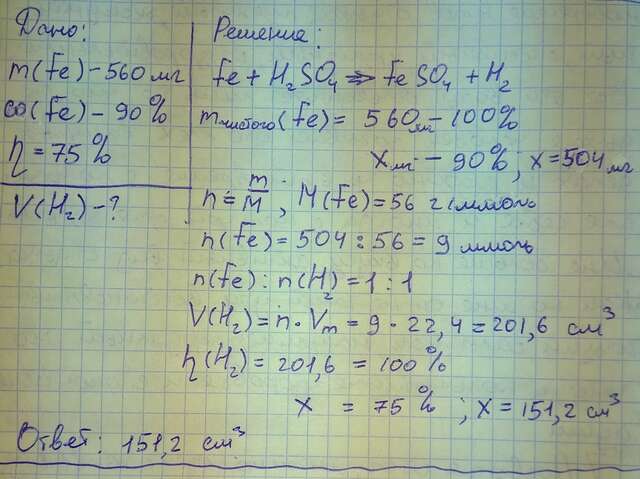 Дано:
m(Fe) - 560 мг
ω(Fe) - 90%
η = 75%
V(H₂) - ?
Решение:
Fe + H₂SO₄ ⇒ FeSO₄ + H₂
m чистого (Fe) = 560 мг - 100%
x мг - 90% ; x = 504 мг
n = m/M ; M(Fe) = 56 г/ммоль
n(Fe) = 504 : 56 = 9 ммоль
n(Fe) : n(H₂) = 1 : 1
V(H₂) = n · Vm = 9 · 22,4 = 201,6 см³
η(H₂) = 201,6 = 100%
x = 75% ; x = 151,2 см³
Ответ: 151,2 см³